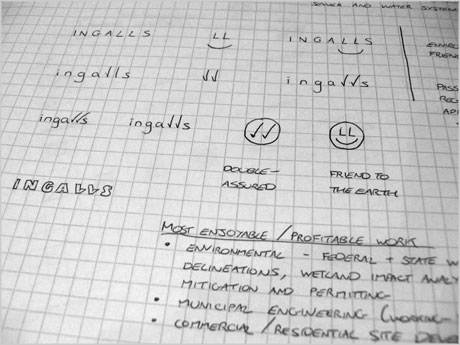 SEWER AND WATER SYSTEM
INGALLS LL INGALLS
ingalls ingalls
ingalls ingalls
LL
DOUBLE-
ASSURED
FRIEND TO
THE EARTH
INGALLS
PASS
API
MOST ENJOYABLE / PROFITABLE WORK
• ENVIRONMENTAL - FEDERAL + STATE W
DELINEATIONS, WETLAND IMPACT ANALY
MITIGATION AND PERMITTING
• MUNICIPAL ENGINEERING (WORKING
• COMMERCIAL / RESIDENTIAL SITE DEVE